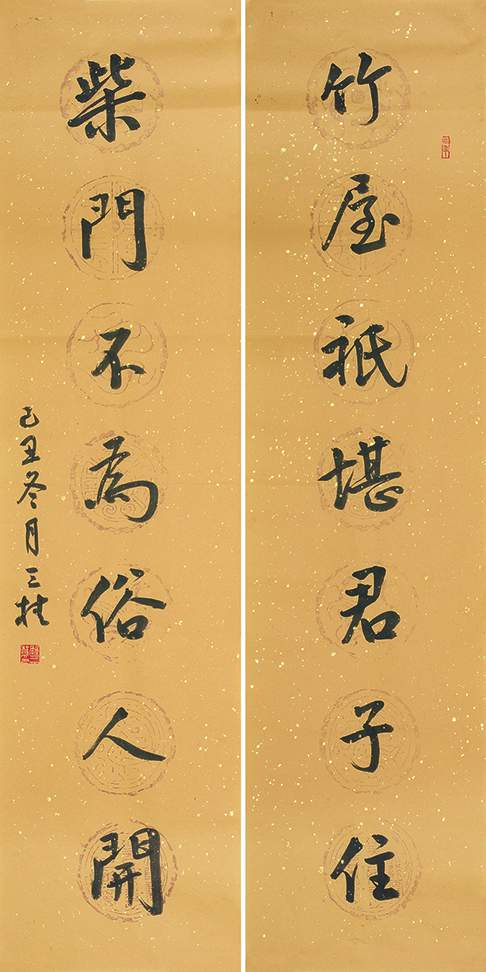 竹屋祇堪君子住
柴門不為俗人開
己丑冬月三桂